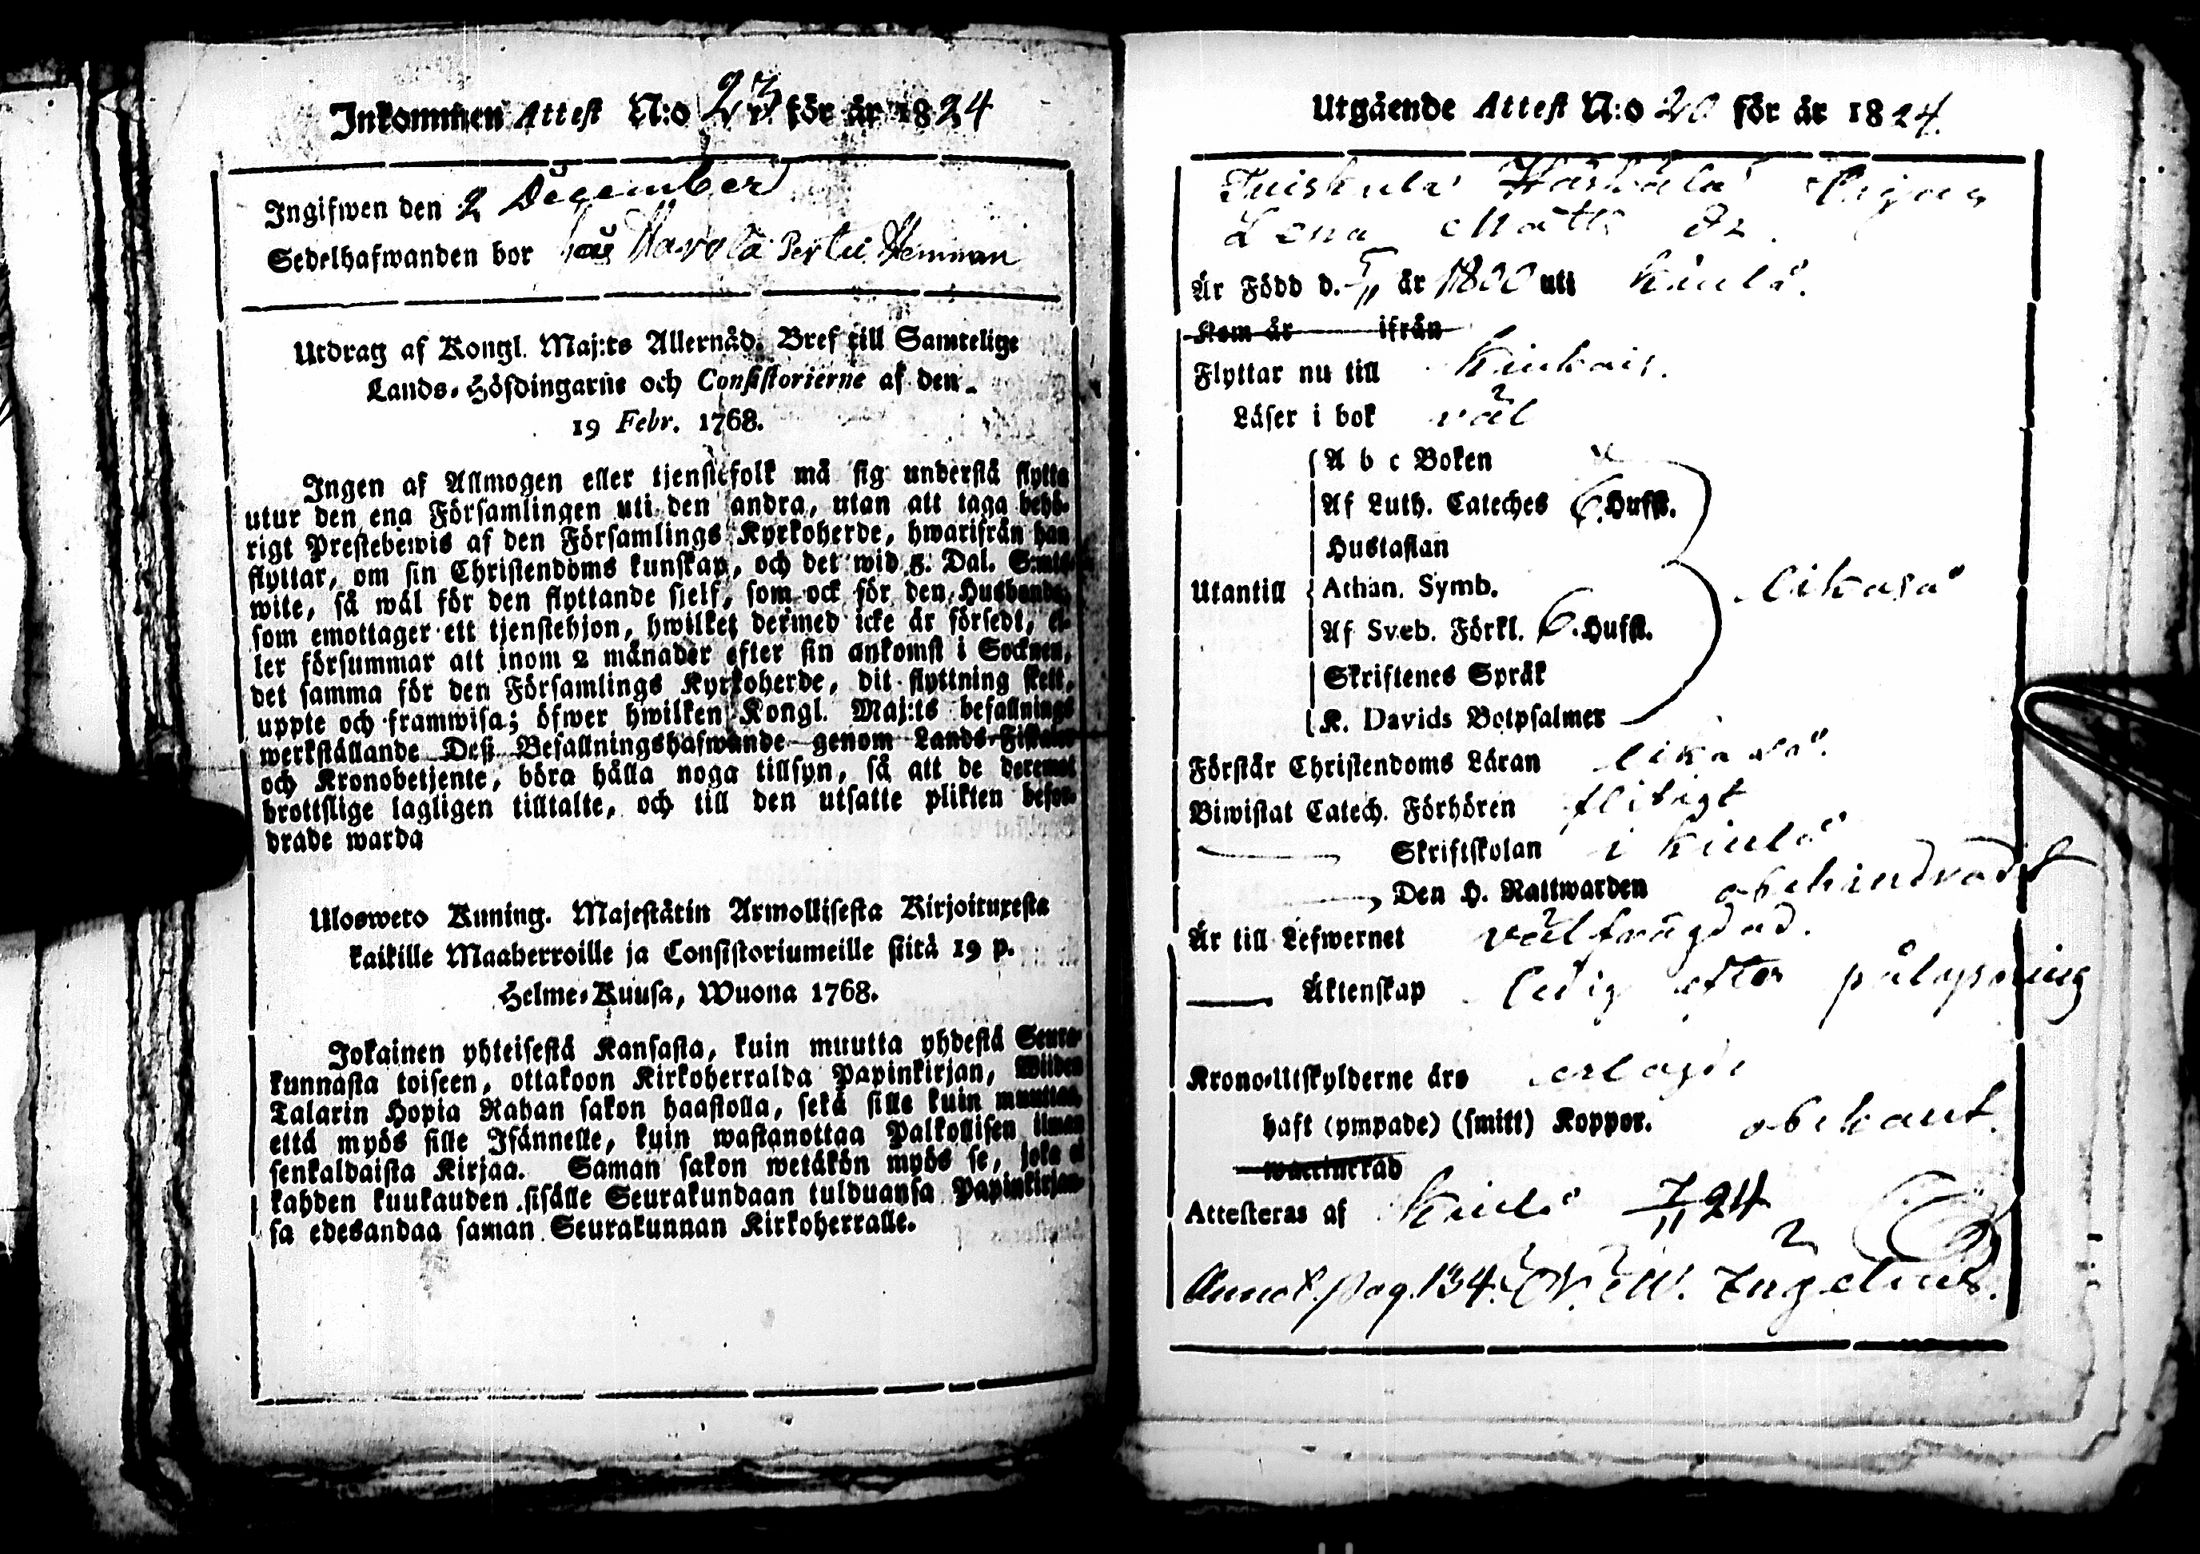 Inkommen Attest N:o 23 för år 1824
Ingifwen den 2 December
Sedelhafwanden bor hos Marola Pertu Hemman
Utdrag af Kongl. Maj:ts Allernåd. Bref till Samtelige
Lands-Höfdingarne och Consistorierne af den
19 Febr. 1768.
Ingen af Allmogen eller tjenstefolk må sig understå flytta
utur den ena Församlingen uti den andra, utan att taga behö-
rigt Prestebewis af den Församlings Kyrkoherde, hwarifrån han
flyttar, om sin Christendoms kunskap, och det wid 5. Dal. S:mts
wite, så wäl för den flyttande sjelf, som ock för den Husbonde,
som emottager ett tjenstehjon, hwilket dermed icke är försedt, el-
ler försummar att inom 2 månader efter sin ankomst i Socknen,
det samma för den Församlings Kyrkoherde, dit flyttning skett,
uppte och framwisa; öfwer hwilken Kongl. Maj:ts befallnings
werkställande Deß Befallningshafwande genom Lands-Fiskaler
och Kronobetjente, böra hålla noga tillsyn, så att de deremot
brottslige lagligen tilltalte, och till den utsatte plikten befor-
drade warda
Ulosweto Kuning. Majestätin Armollisesta Kirjoituxesta
kaikille Maaherroille ja Consistoriumeille siitä 19 p.
Helme-Kuusa, Wuona 1768.
Jokainen yhteisestä Kansasta, kuin muutta yhdestä Seura-
kunnasta toiseen, ottakoon Kirkoherralda Papinkirjan, Wiiden
Talarin Hopia Rahan sakon haastolla, sekä sille kuin muuttaa,
että myös sille Isännelle, kuin wastanottaa Palkollisen ilman
senkaldaista Kirjaa. Saman sakon wetäkön myös se, joka ei
kahden kuukauden sisälle Seurakundaan tulduansa Papinkirjan-
sa edesandaa saman Seurakunnan Kirkoherralle.
Utgående Attest N:o 20 för år 1824.
Tuiskula Härkälä Pigan
Lena Matts Dr.
Är Född d. 5/11 år 1800 uti Kiulo.
Kom år ifrån
Flyttar nu till Kiukais.
Läser i bok väl
A b c Boken
Af Luth. Cateches 6. Hufst.
Hustaflan
Utantill Athan. Symb. likaså
Af Sveb. Förkl. 6. Hufst.
Skriftenes Språk
K. Davids Botpsalmer
Förstår Christendoms Läran likaså.
Biwistat Catech. Förhören flitigt
Skriftskolan i Kiulo
Den H. Nattwarden obehindradt
Är till Lefwernet välfrägdad.
Äktenskap ledig efter pålysning
Krono-Utskylderne äro erlagde
haft (ympade) (smitt) Koppor. obekant.
waccinerad
Attesteras af Kiulo 7/11 24
Annot. pag. 134. N. M. Tngelius.